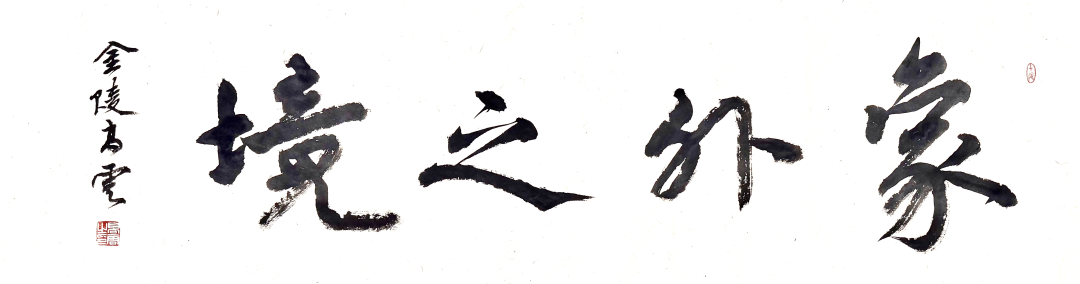 象外之境
金陵高雲